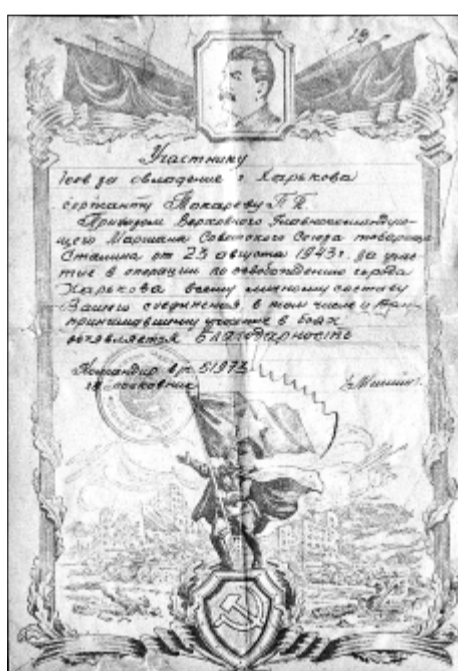 Участнику
боев за овладение г. Харькова
сержанту Макареву П.
Приказом Верховного Главнокомандую-
щего Маршала Советского Союза товарища
Сталина от 23 августа 1943 г. за учас
тие в операции по освобождению города
Харькова всему личному составу
Вашего соединения, в том числе и Вам
принимавшему участие в боях
объявляется благодарность
Командир в/ч 51973
полковник